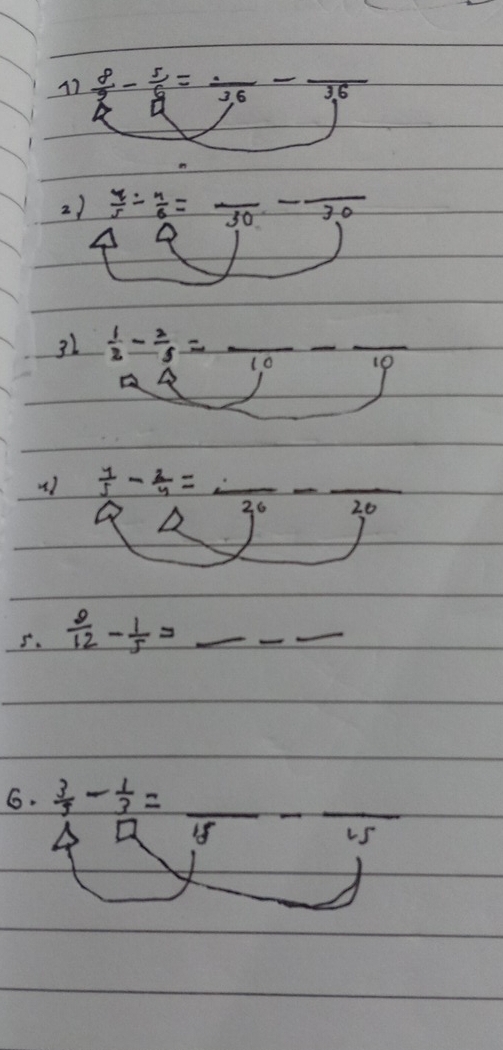 1) 8/9 - 5/6 = __/36 - __/36
2) 4/5 - 4/6 = __/30 - __/30
3) 1/2 - 2/5 = __/10 - __/10
4) 4/5 - 2/4 = __/20 - __/20
5. 9/12 - 1/5 = __ - __
6. 3/5 - 1/3 = __/15 - __/15